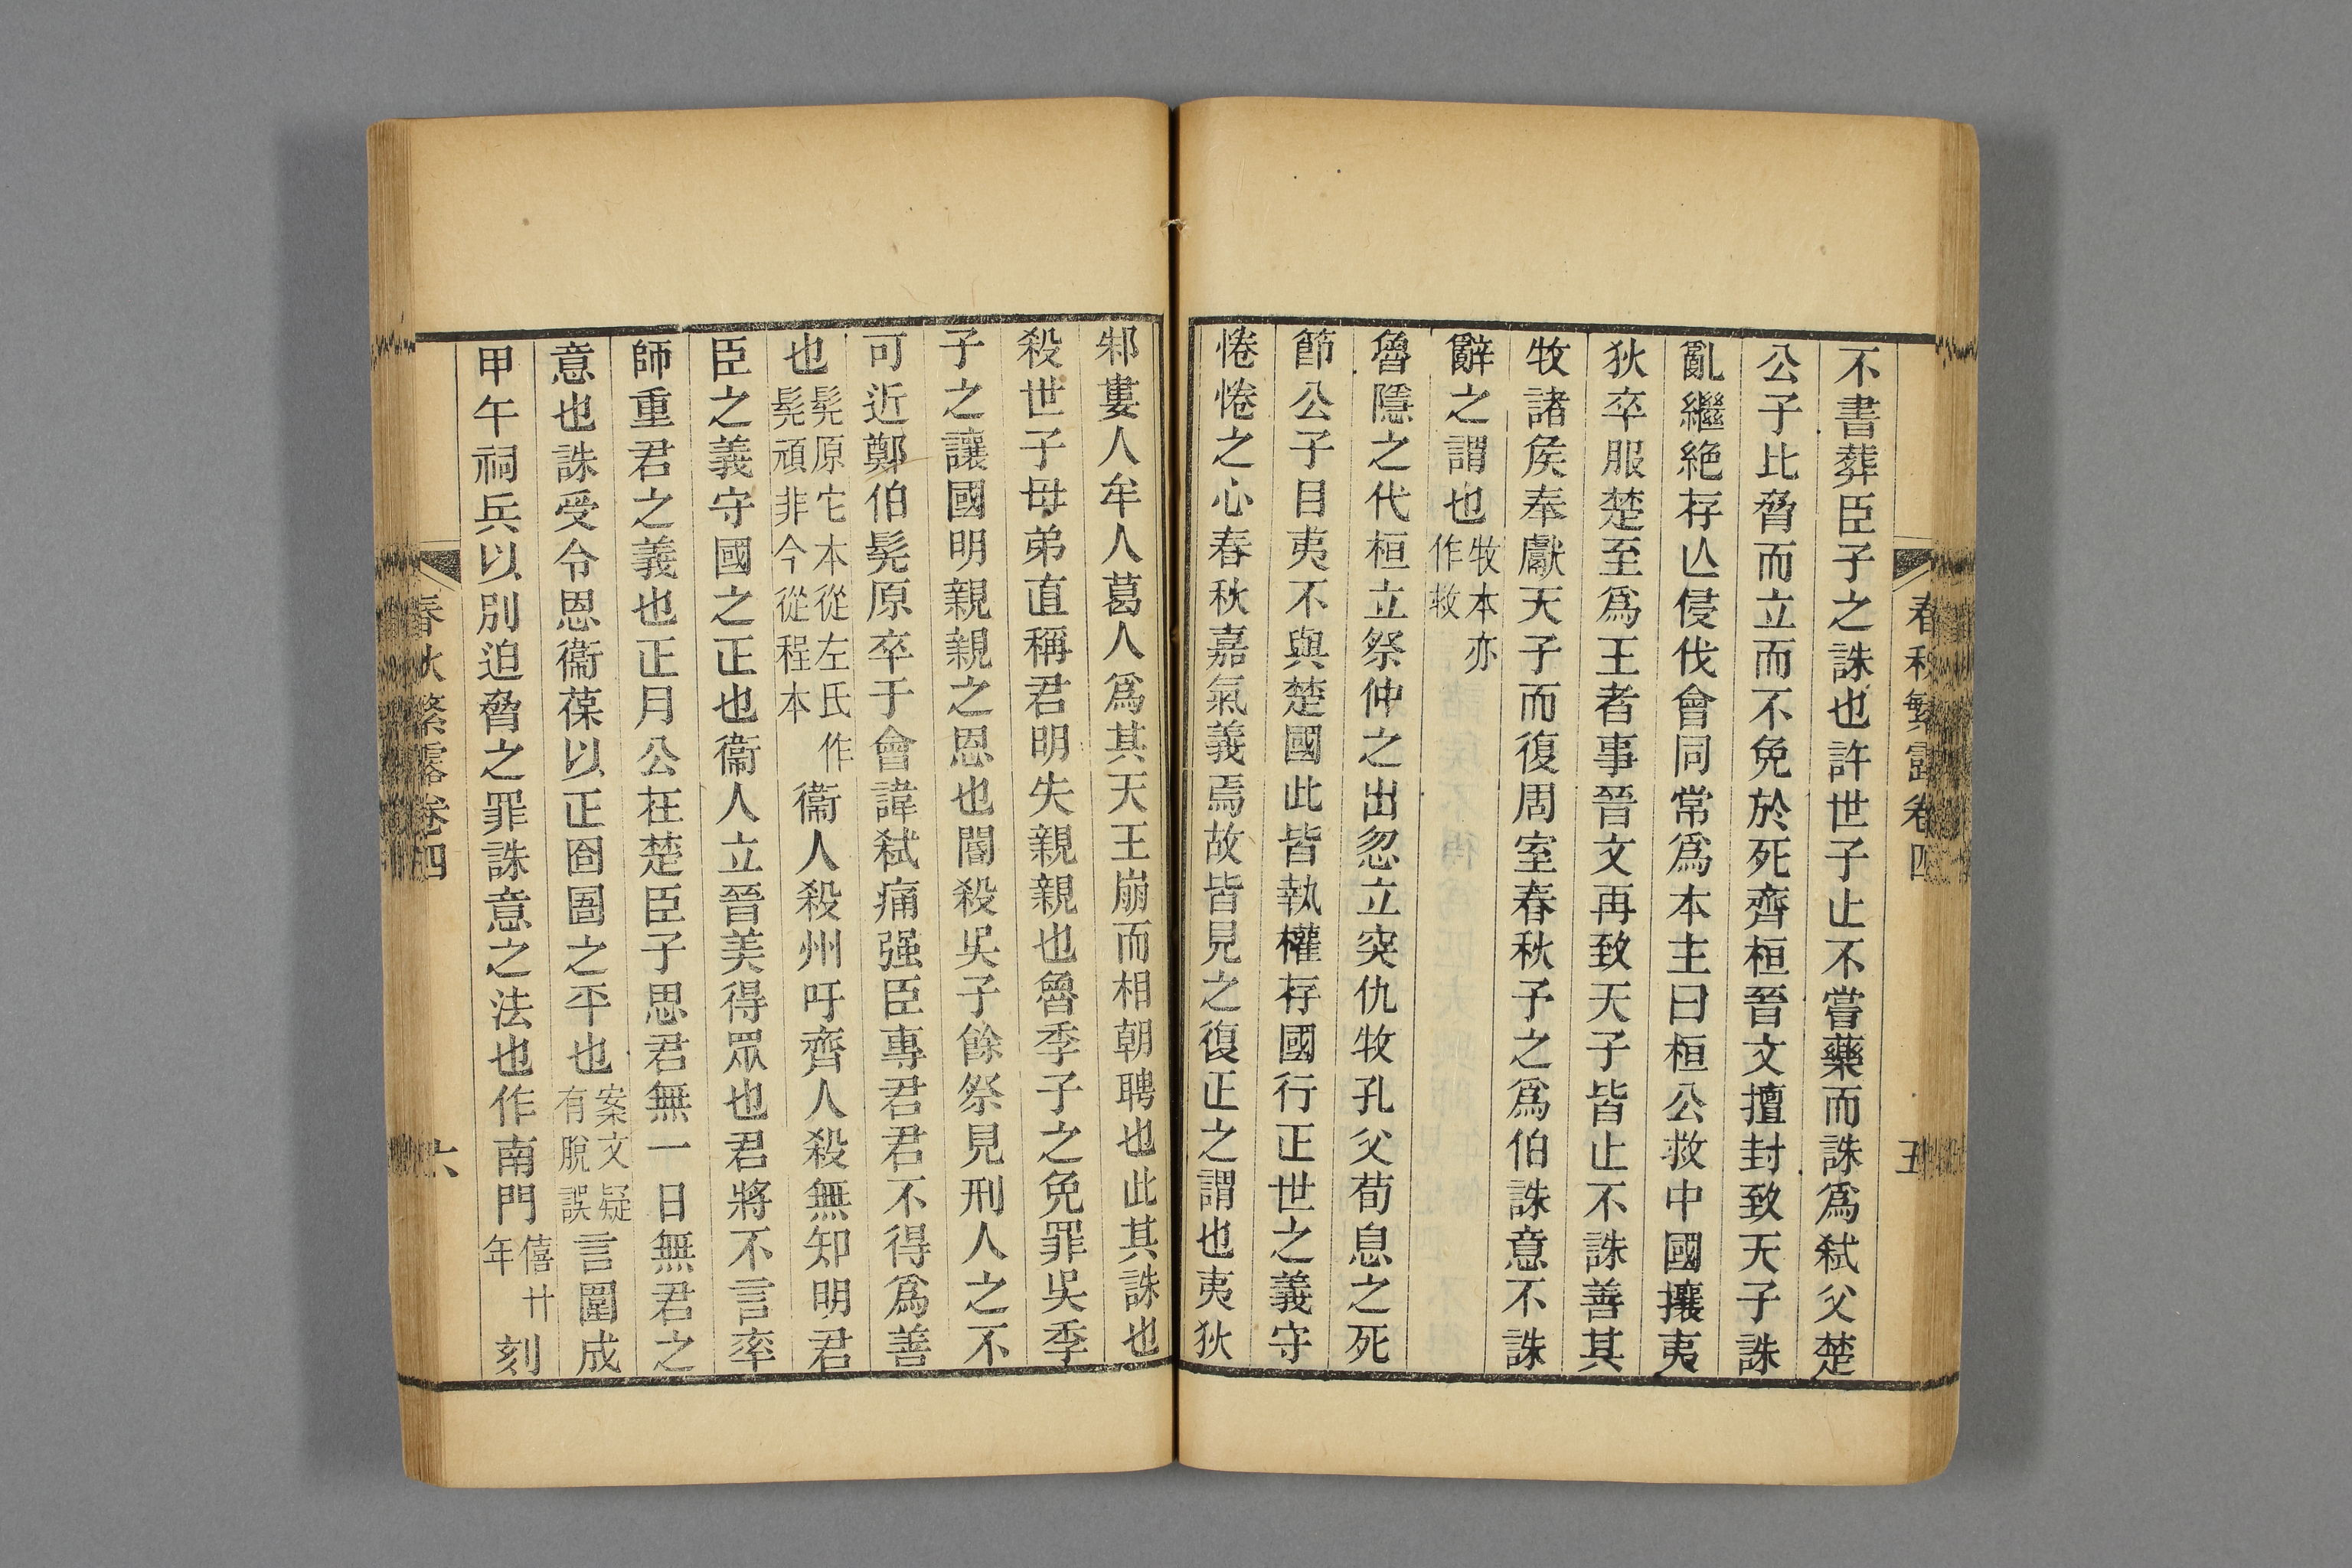 春秋繁露卷四
五
不書葬臣子之誅也許世子止不嘗藥而誅爲弒父楚
公子比脅而立而不免於死齊桓晉文擅封致天子誅
亂繼絶存亾侵伐會同常爲本主曰桓公救中國攘夷
狄卒服楚至爲王者事晉文再致天子皆止不誅善其
牧諸矦奉獻天子而復周室春秋予之爲伯誅意不誅
辭之謂也牧本亦作救
魯隱之代桓立祭仲之出忽立突仇牧孔父荀息之死
節公子目夷不與楚國此皆執權存國行正世之義守
惓惓之心春秋嘉氣義焉故皆見之復正之謂也夷狄
邾婁人牟人葛人爲其天王崩而相朝聘也此其誅也
殺世子母弟直稱君明失親親也魯季子之免罪吳季
子之讓國明親親之恩也閽殺吳子餘祭見刑人之不
可近鄭伯髡原卒于會諱弒痛强臣專君君不得爲善
也髡原它本從左氏作髡頑非今從程本衞人殺州吁齊人殺無知明君
臣之義守國之正也衞人立晉美得眾也君將不言率
師重君之義也正月公在楚臣子思君無一日無君之
意也誅受令恩衞葆以正囹圄之平也案文疑有脫誤言圍成
甲午祠兵以別迫脅之罪誅意之法也作南門僖廿年刻
春秋繁露卷四
六